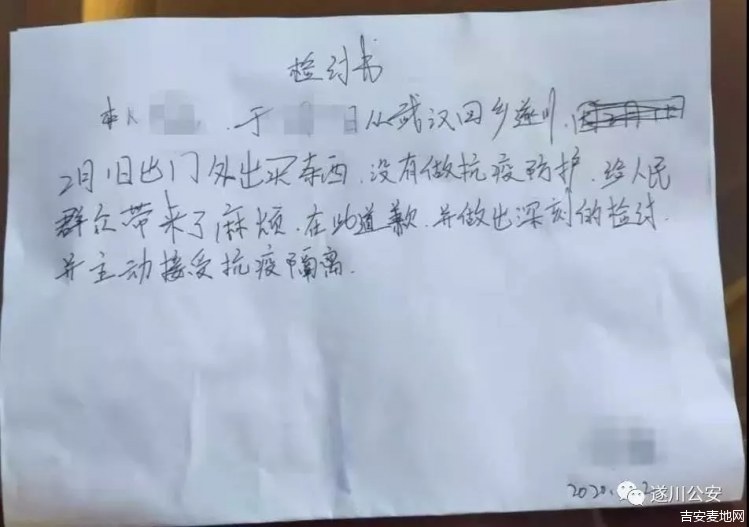 检讨书
本人 于 日从武汉回乡遂川,
2月1日出门外出买东西.没有做抗疫防护.给人民
群众带来了麻烦.在此道歉.并做出深刻的检讨.
并主动接受抗疫隔离.
2020. 2
遂川公安
吉安麦地网